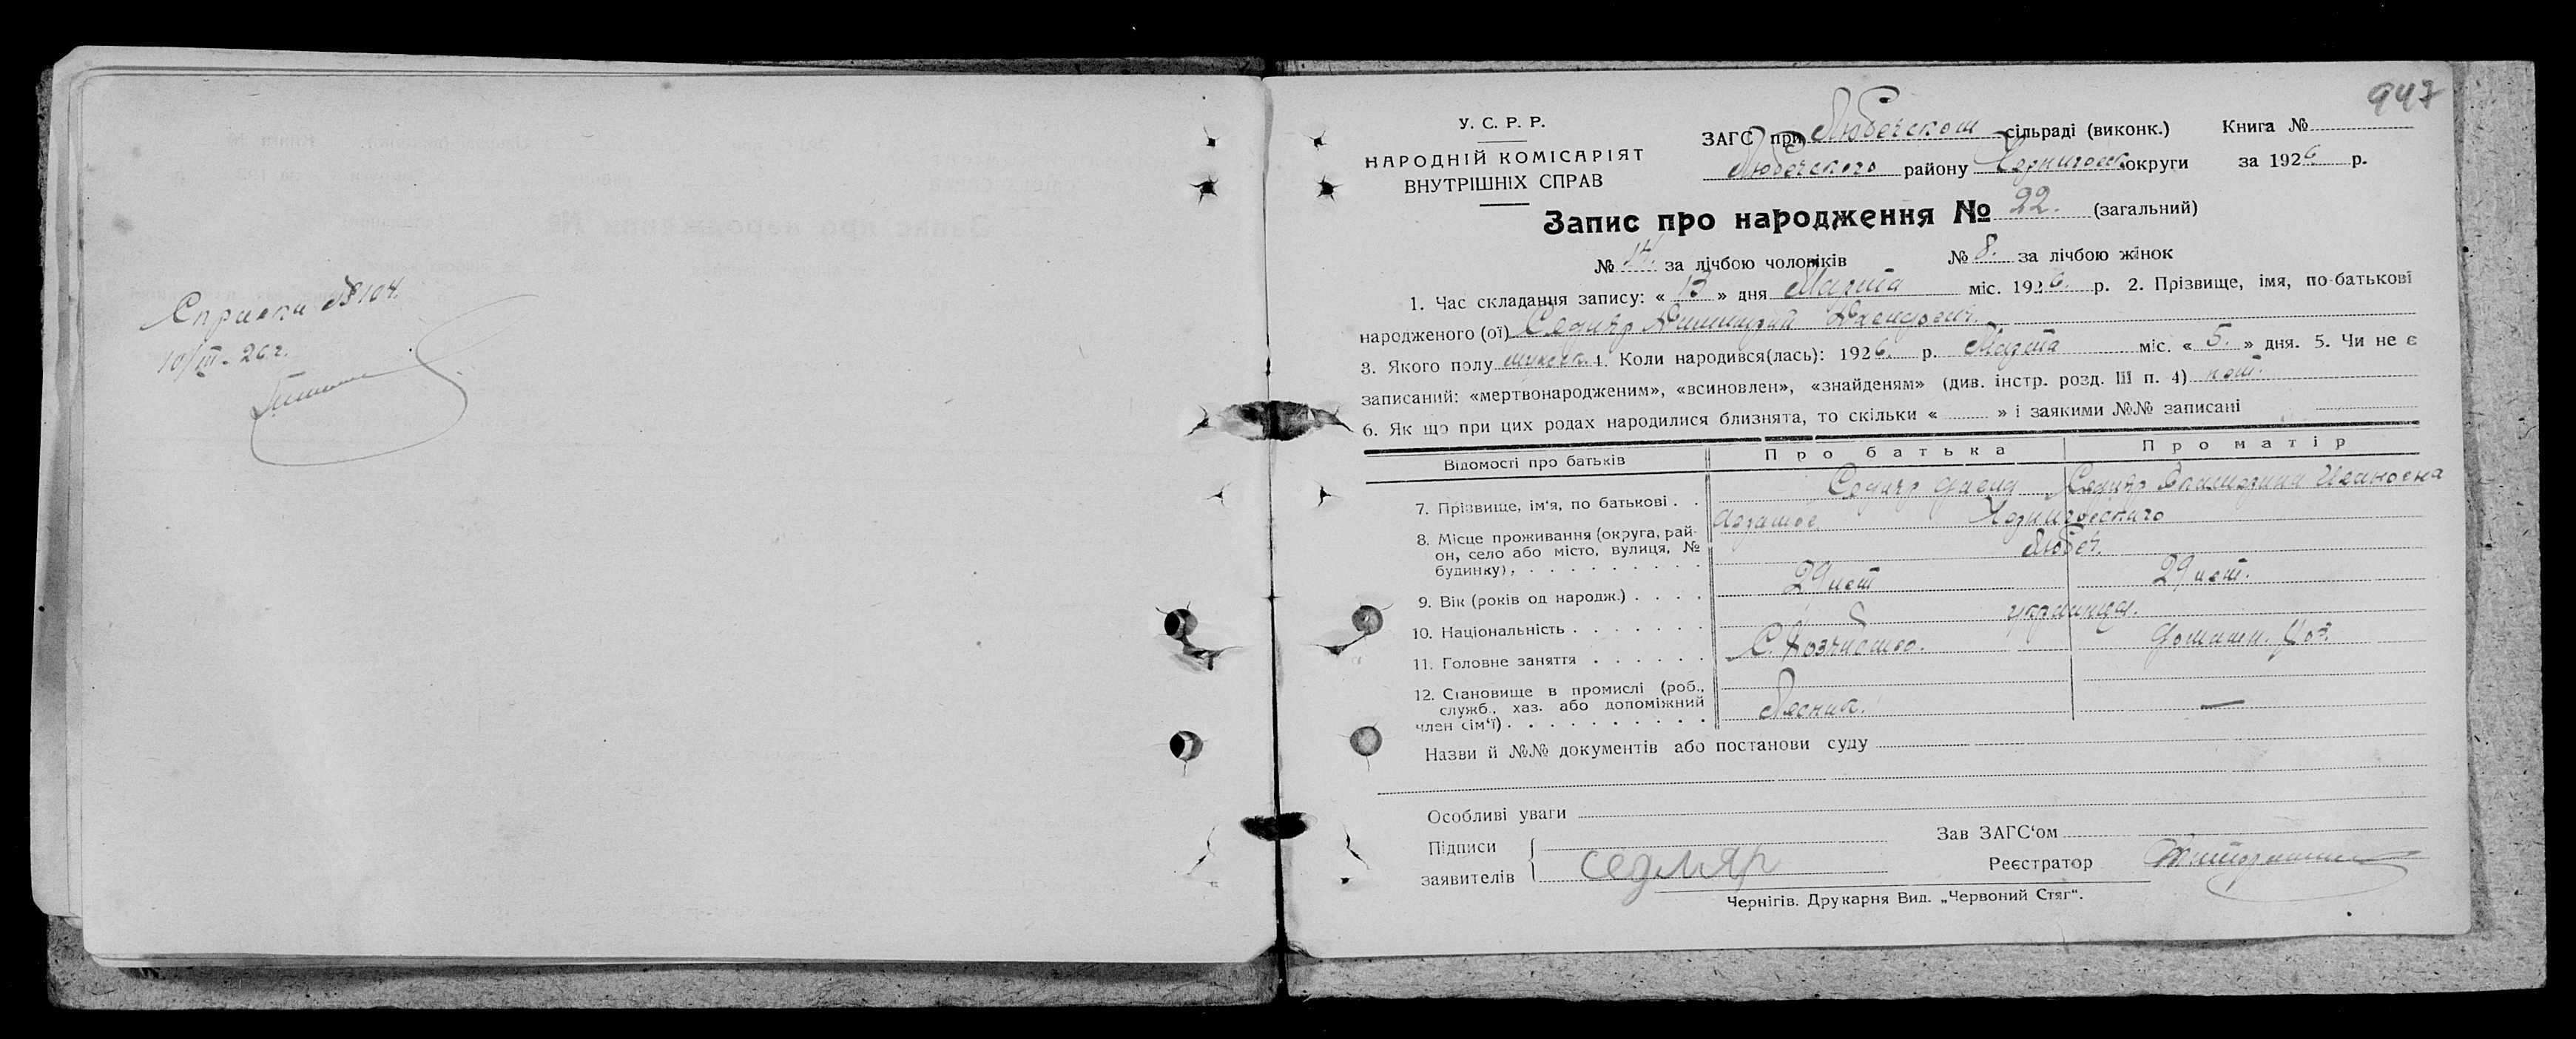 Справка № 104.
10/III-26 г.
947
У. С. Р. Р.
НАРОДНІЙ КОМІСАРІЯТ
ВНУТРІШНІХ СПРАВ
ЗАГС при Любечском сільраді (виконк.) Книга №
Любечского району Черниговск округи за 1926 р.
Запис про народження № 22. (загальний)
№ 14. за лічбою чоловіків № 8. за лічбою жінок
1. Час складання запису: « 13 » дня Марта міс. 1926. р. 2. Прізвище, імя, по-батькові
народженого (ої) Седляр Димитрий Давидович.
3. Якого полу мужск. 4. Коли народився(лась): 1926. р. Марта міс. « 5. » дня. 5. Чи не є
записаний: «мертвонародженим», «всиновлен», «знайденям» (див. інстр. розд. III п. 4) нет.
6. Як що при цих родах народилися близнята, то скільки « » і заякими №№ записані
Відомості про батьків Про батька Про матір
7. Прізвище, ім'я, по батькові . . Седляр Давид Седляр Екатерина Ивановна
8. Місце проживання (округа, рай- Черниговского
он, село або місто, вулиця, № Любеч.
будинку) . . . . . . . . . .
9. Вік (років од народж.) . . . . 29 лет 29 лет.
10. Національність . . . . . . . украинцы.
11. Головне заняття . . . . . . С. Хозяйство. домашн. хоз.
12. Становище в промислі (роб.,
служб., хаз. або допоміжний
член сім'ї) . . . . . . . . . . Лесник. —
Назви й №№ документів або постанови суду
Особливі уваги
Підписи Зав ЗАГС'ом
заявителів седляр Реєстратор
Чернігів. Друкарня Вид. „Червоний Стяг".